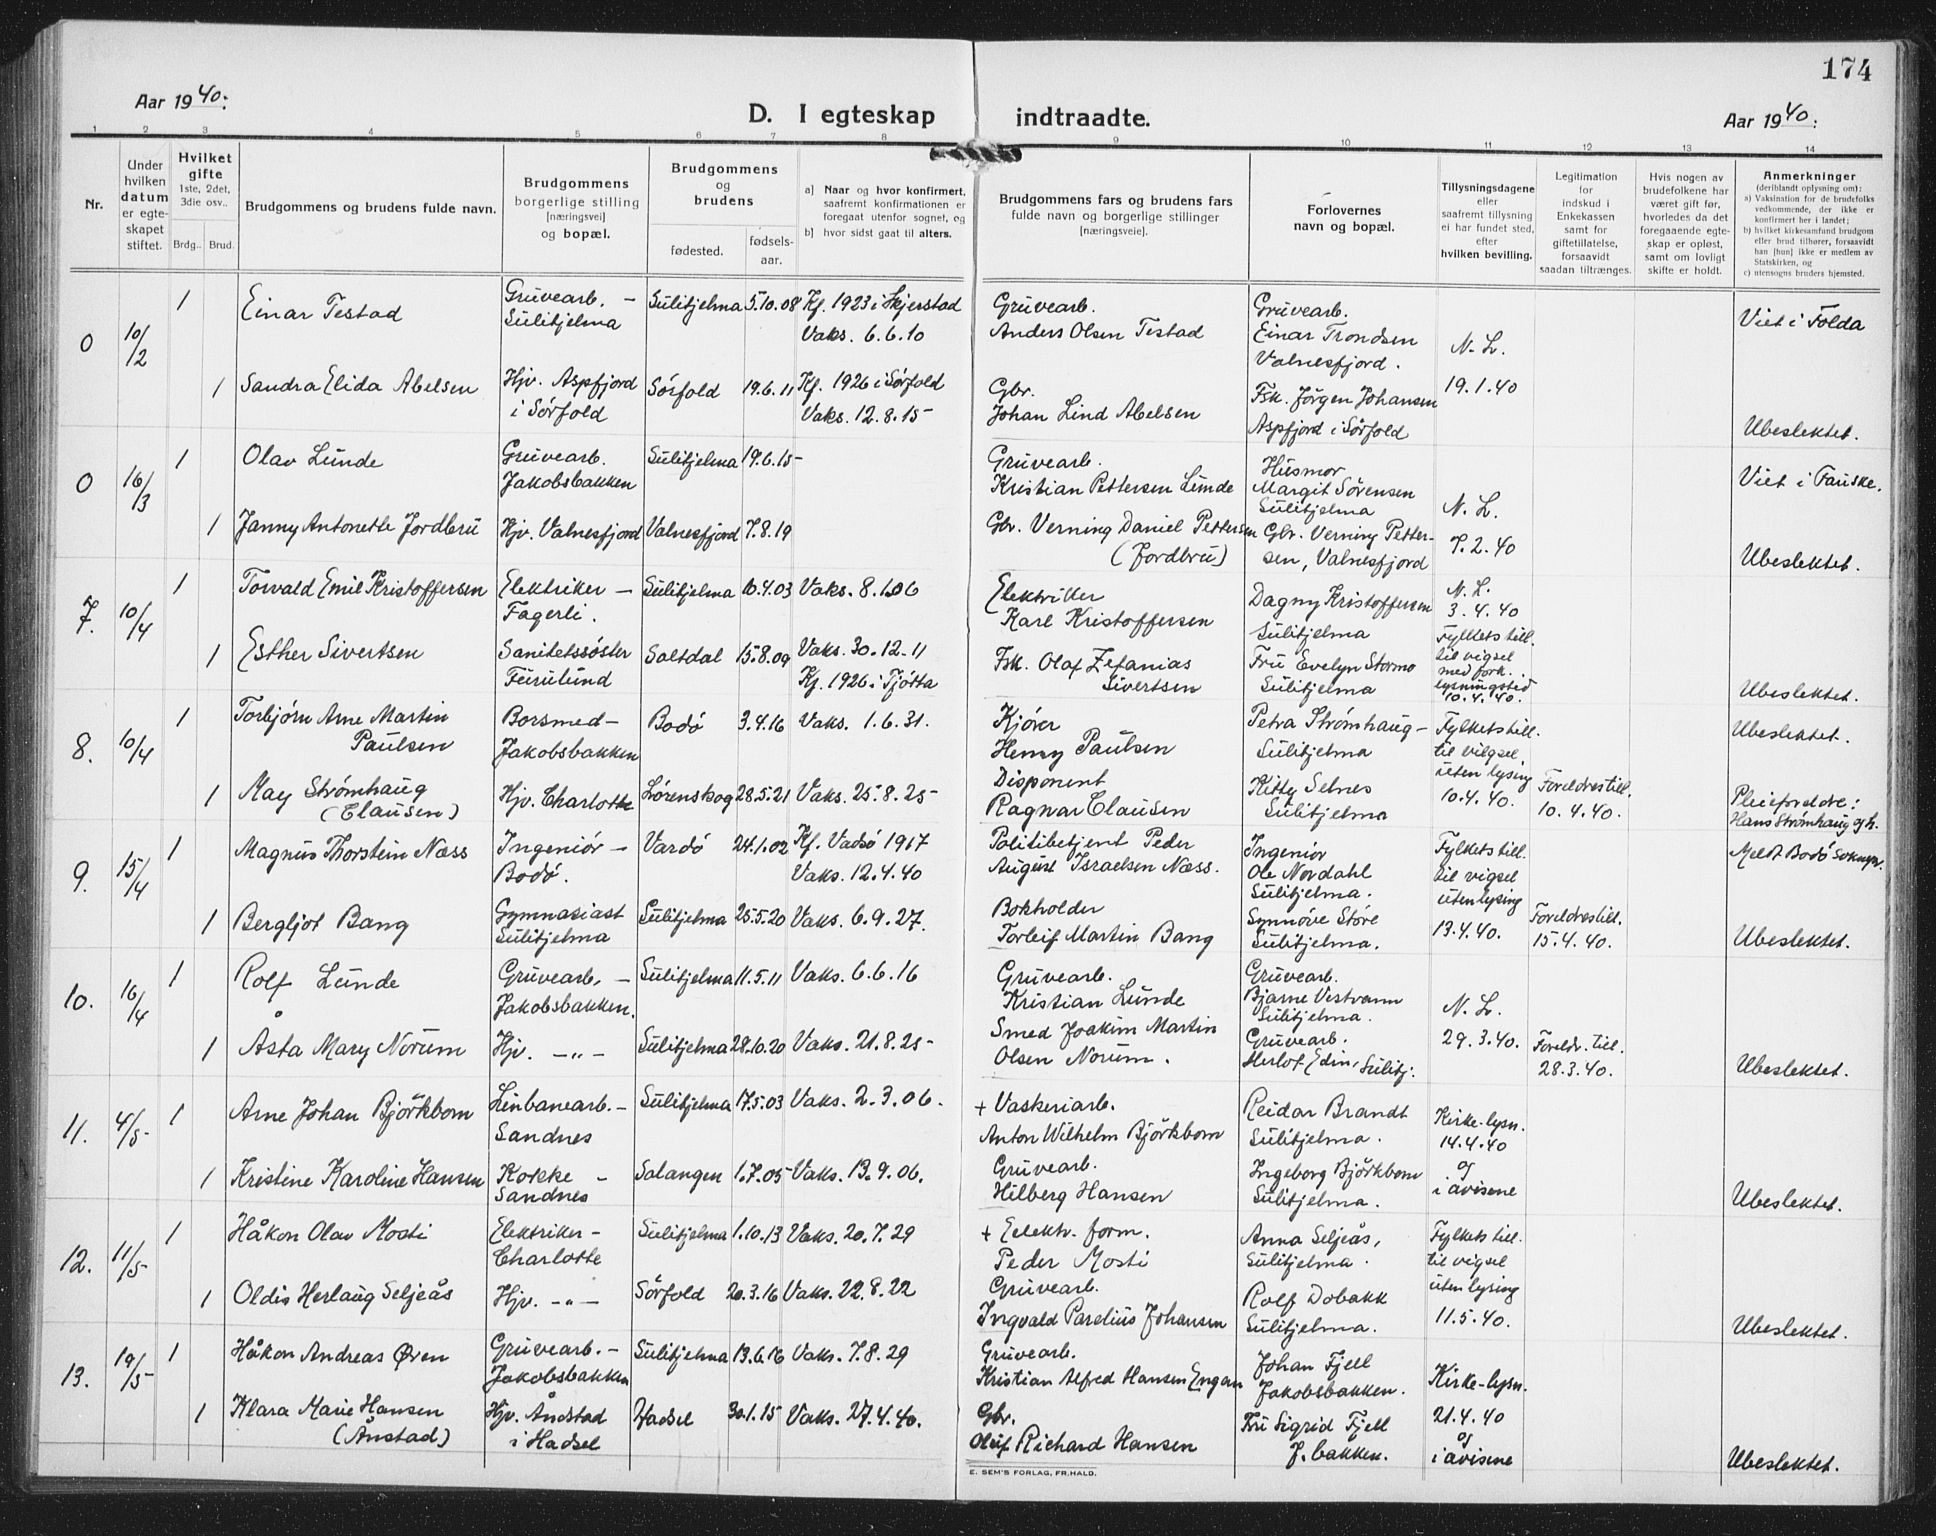 174
Aar 1940:
D. I egteskap indtraadte.
Aar 1940:
1 2 3 4 5 6 7 8 9 10 11 12 13 14
Nr.
Under hvilken datum er egteskapet stiftet.
Hvilket gifte
1ste, 2det, 3die osv..
Brdg.. Brud.
Brudgommens og brudens fulde navn.
Brudgommens borgerlige stilling [næringsvei] og bopæl.
Brudgommens og brudens
fødested. fødsels-aar.
a) Naar og hvor konfirmert, saafremt konfirmationen er foregaat utenfor sognet, og
b) hvor sidst gaat til alters.
Brudgommens fars og brudens fars fulde navn og borgerlige stillinger [næringsveie].
Forlovernes navn og bopæl.
Tillysningsdagene eller saafremt tillysning ei har fundet sted, efter hvilken bevilling.
Legitimation for indskud i Enkekassen samt for giftetillatelse, forsaavidt saadan tiltrænges.
Hvis nogen av brudefolkene har været gift før, hvorledes da det foregaaende egteskap er opløst, samt om lovligt skifte er holdt.
Anmerkninger
(deriblandt oplysning om):
a) Vaksination for de brudefolks vedkommende, der ikke er konfirmert her i landet;
b) hvilket kirkesamfund brudgom eller brud tilhører, forsaavidt han [hun] ikke er medlem av Statskirken, og
c) utensogns bruders hjemsted.
0 10/2 1 Einar Testad Gruvearb. – Sulitjelma Sulitjelma 5.10.08 Kf. 1923 i Skjerstad Vaks. 6.6.10 Gruvearb. Anders Olsen Testad Gruvearb. Einar Trondsen Valnesfjord. N. L. 19.1.40 Viet i Folda
1 Sandra Elida Abelsen Hjv. Aspfjord i Sørfold Sørfold 19.6.11 Kf. 1926 i Sørfold Vaks. 12.8.15 Gbr. Johan Lind Abelsen Fsk. Jørgen Johansen Aspfjord i Sørfold Ubeslektet.
0 16/3 1 Olav Lunde Gruvearb. Jakobsbakken Sulitjelma 19.6.15 Gruvearb. Kristian Pettersen Lunde Husmor Margit Sørensen Sulitjelma N. L. 7.2.40 Viet i Fauske.
1 Janny Antonette Jordbru Hjv. Valnesfjord Valnesfjord 7.8.19 Gbr. Verning Daniel Pettersen (Jordbru) Gbr. Verning Pettersen, Valnesfjord Ubeslektet.
7. 10/4 1 Torvald Emil Kristoffersen Elektriker – Fagerli. Sulitjelma 10.4.03 Vaks. 8.1.06 Elektriker Karl Kristoffersen Dagny Kristoffersen Sulitjelma N. L. 3.4.40 Fylkets till. til vigsel med fork. lysningstid 10.4.40.
1 Esther Sivertsen Sanitetssøster Furulund Saltdal 15.8.09 Vaks. 30.12.11 Kf. 1926 i Tjøtta Fsk. Olaf Zefanias Sivertsen Fru Evelyn Stormo Sulitjelma Ubeslektet.
8. 10/4 1 Torbjørn Arne Martin Paulsen Borsmed – Jakobsbakken Bodø 3.4.16 Vaks. 1.6.31. Kjører Henry Paulsen Petra Strømhaug – Sulitjelma Fylkets till. til vilgsel uten lysing 10.4.40. Ubeslektet.
1 May Strømhaug (Clausen) Hjv. Charlotte Lørenskog 28.5.21 Vaks. 25.8.25 Disponent Ragnar Clausen Kitty Selnes Sulitjelma Foreldres till. 10.4.40. Pleieforeldre: Hans Strømhaug og h.
9. 15/4 1 Magnus Thorstein Næss Ingeniør – Bodø. Vardø 24.1.02 Kf. Vadsø 1917 Vaks. 12.4.40 Politibetjent Peder August Israelsen Næss. Ingeniør Ole Nordahl Sulitjelma. Fylkets till. til vigsel uten lysing 13.4.40. Meldt Bodø
1 Bergljot Bang Gymnasiast Sulitjelma Sulitjelma 25.5.20 Vaks. 6.9.27. Bokholder Torleif Martin Bang Synnøve Støre Sulitjelma. Foreldres till. 15.4.40. Ubeslektet.
10. 16/4 1 Rolf Lunde Gruvearb. – Jakobsbakken. Sulitjelma 11.5.11 Vaks. 6.6.16 Gruvearb. Kristian Lunde Gruvearb. Bjarne Vestvann Sulitjelma. N. L. 29.3.40.
1 Åsta Mary Norum Hjv. –"– Sulitjelma 28.10.20 Vaks. 21.8.25 Smed Joakim Martin Olsen Norum. Gruvearb. Herlof Edin, Sulitj: Foreldr. till. 28.3.40. Ubeslektet.
11. 4/5 1 Arne Johan Björkbom Linbanearb. – Sandnes Sulitjelma 17.5.03 Vaks. 2.3.06. + Vaskeriarb. Anton Wilhelm Björkbom Reidar Brandt Sulitjelma. Kirke-lysn. 14.4.40 og i avisene
1 Kristine Karoline Hansen Kokke – Sandnes Salangen 1.7.05 Vaks. 13.9.06. Gruvearb. Hilberg Hansen Ingeborg Björkbom Sulitjelma. Ubeslektet.
12. 11/5 1 Håkon Olav Mosti Elektriker – Charlotte Sulitjelma 1.10.13 Vaks. 20.7.29 + Eelektr. form. Peder Mosti Anna Seljeås, Sulitjelma. Fylkets till. til vigsel uten lysing 11.5.40.
1 Oldis Herlaug Seljeås Hjv. –"– Sørfold 20.3.16 Vaks. 22.8.22 Gruvearb. Ingvald Parelius Johansen Rolf Dobakk Sulitjelma. Ubeslektet.
13. 19/5 1 Håkon Andreas Øren Gruvearb. – Jakobsbakken Sulitjelma 13.6.16 Vaks. 7.8.29 Gruvearb. Kristian Alfred Hansen Engan Johan Fjell Jakobsbakken. Kirke-lysn. 21.4.40 og i avisene
1 Klara Marie Hansen (Ånstad) Hjv. Åndstad i Hadsel Hadsel 30.1.15 Vaks. 27.4.40. Gbr. Oluf Richard Hansen Fru Sigrid Fjell J. bakken. Ubeslektet.
E. SEM'S FORLAG, FR.HALD.